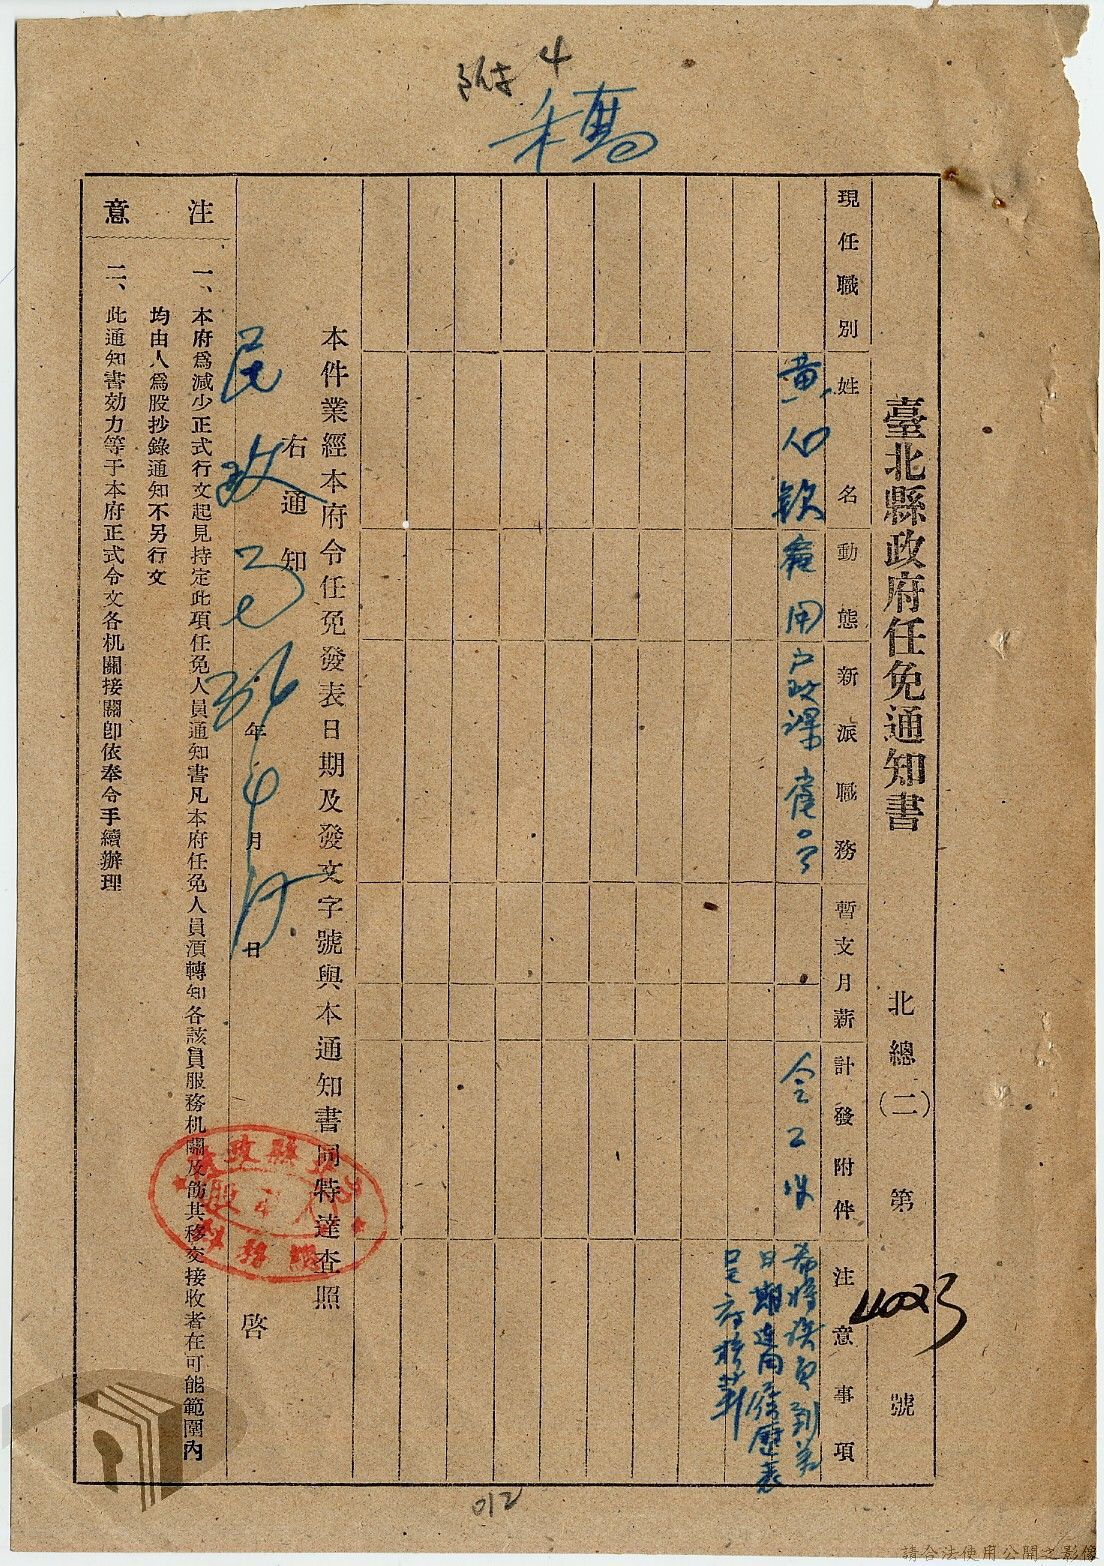 附4
稿
臺北縣政府任免通知書　北總(二)　第　4023　號
現任職別
姓名
動態
新派職務
暫支月薪
計發附件
注意事項
黃
用
戶政課
令
希將該員到差
日期連同履歷表
呈府核薪
本件業經本府令任免發表日期及發文字號與本通知書同特達查照
右通知
民政局
36年4月日
啓
注意
一、本府爲减少正式行文起見持定此項任免人員通知書凡本府任免人員須轉知各該員服務机關及飭其移交接收者在可能範圍內
均由人爲股抄錄通知不另行文
二、此通知書効力等于本府正式令文各机關接關卽依奉令手續辦理
012
請合法使用公開之影像